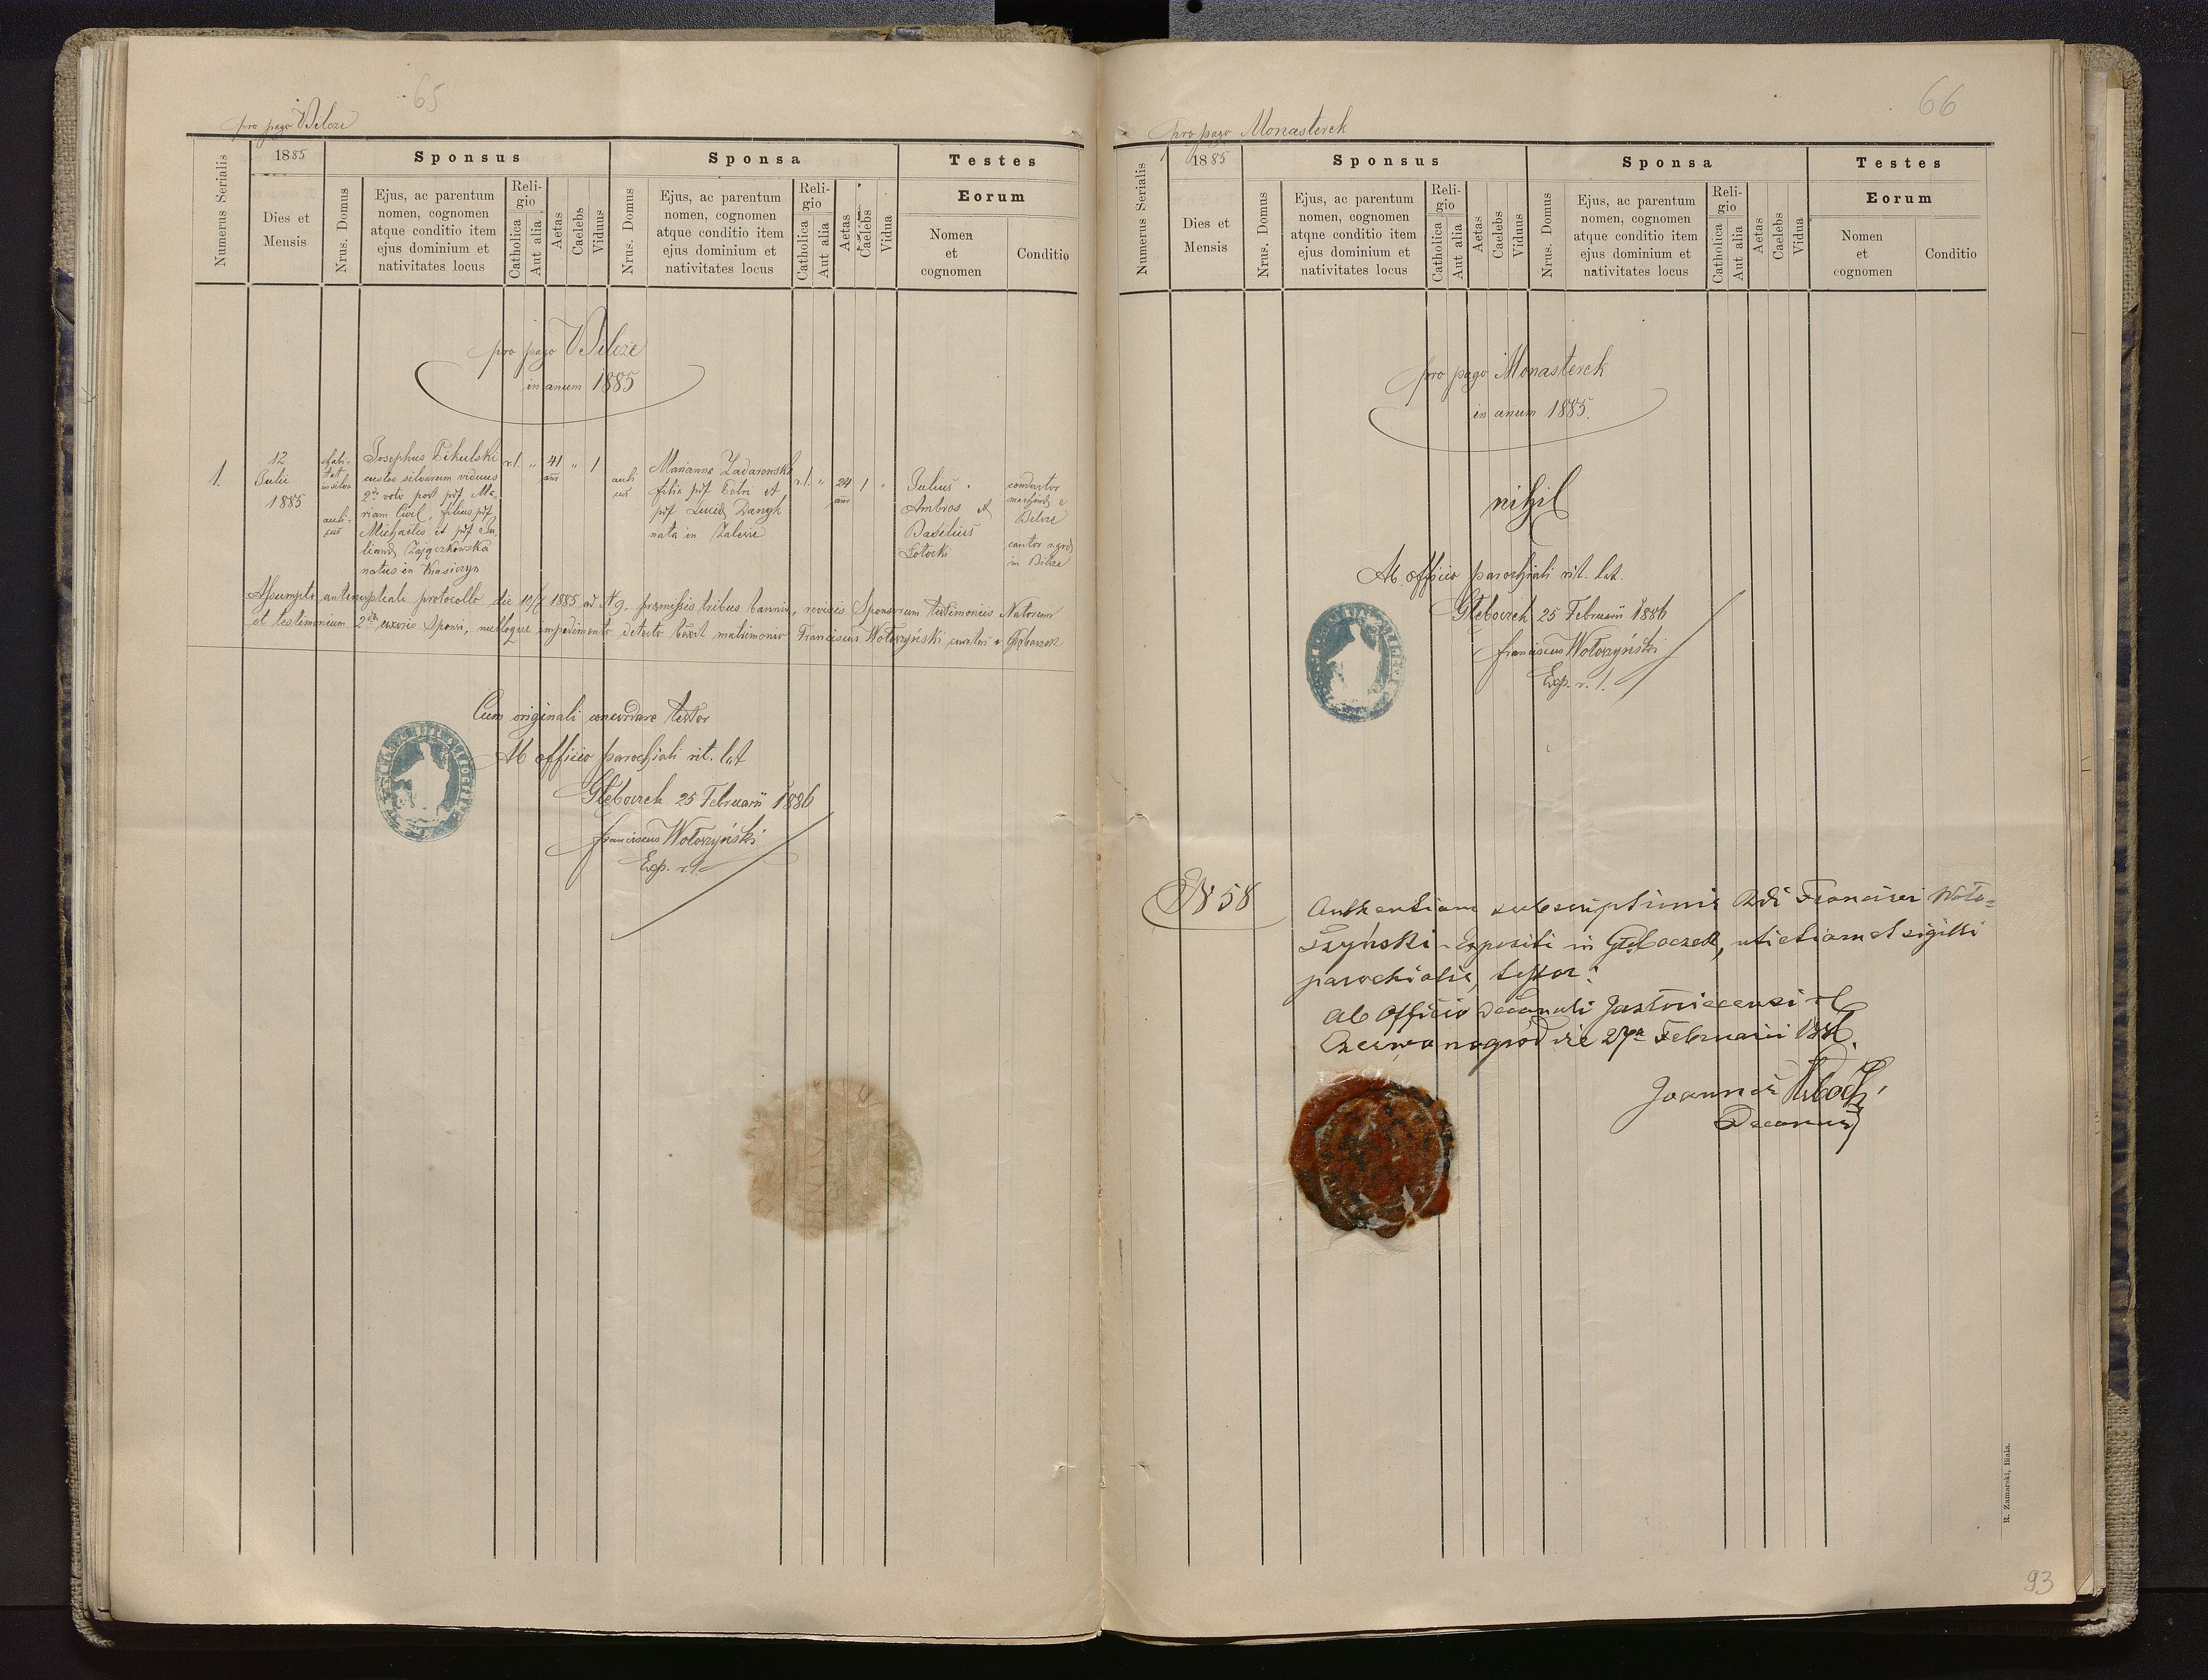 65
pro pago Bilcze
Numerus Serialis
1885
Dies et
Mensis
Sponsus
Nrus. Domus
Ejus, ac parentum
nomen, cognomen
atque conditio item
ejus dominium et
nativitates locus
Reli-
gio
Catholica
Aut alia
Aetas
Caelebs
Viduus
Sponsa
Nrus. Domus
Ejus, ac parentum
nomen, cognomen
atque conditio item
ejus dominium et
nativitates locus
Reli-
gio
Catholica
Aut alia
Aetas
Caelebs
Vidua
Testes
Eorum
Nomen
et
cognomen
Conditio
pro pago Bilcze
in anum 1885
1.
12
Julii
1885
habi-
tat
in silva
auli-
cus
Josephus Cihulski
custos silvarum viduus
2do voto post pdf Ma-
riam Ciel, filius pdf
Michaelis et pdf Ju
lianae Zajączkowska
natus in Krasiczyn
r.l.
"
41
ann
"
1
auli
cus
Marianna Zadarowska
filia pdf Petri et
pdf Luciae Danyk
nata in Zalesie
r.l.
"
24
ann
1
"
Julius
Ambros et
Basilius
Sołocki
conductor
in Bilcze
cantor
in Bilcze
Assumpto antenuptiali protocollo die 10/7 1885 ad N 9. praemissis tribus bannis, revisis Sponsorum testimoniis Natorum
et testimonium 2dae uxoris Sponsi, nulloque impedimento detecto bened. matrimonio Franciscus Wołoszyński curatus Głęboczek
Cum originali concordare testor
Ab officio parochiali rit. lat
Głęboczek 25 Februarii 1886
Franciscus Wołoszyński
Exp. r. l.
66
pro pago Monasterek
Numerus Serialis
1885
Dies et
Mensis
Sponsus
Nrus. Domus
Ejus, ac parentum
nomen, cognomen
atqne conditio item
ejus dominium et
nativitates locus
Reli-
gio
Catholica
Aut alia
Aetas
Caelebs
Viduus
Sponsa
Nrus. Domus
Ejus, ac parentum
nomen, cognomen
atque conditio item
ejus dominium et
nativitates locus
Reli-
gio
Catholica
Aut alia
Aetas
Caelebs
Vidua
Testes
Eorum
Nomen
et
cognomen
Conditio
pro pago Monasterek
in anum 1885.
nihil
Ab officio parochiali rit. lat.
Głęboczek 25 Februarii 1886
Franciscus Wołoszyński
Exp. r. l.
N 58
Authentiam subscriptionis Rdi Francisci Woło=
szyński Expositi in Głęboczek, uti etiam et sigilli
parochialis, testor:
Ab Officio Decanali Jazłoviecensi rl
Czerwonogród die 27a Februarii 1886.
Joannes
Decanus
R. Zamarski, Biala.
93